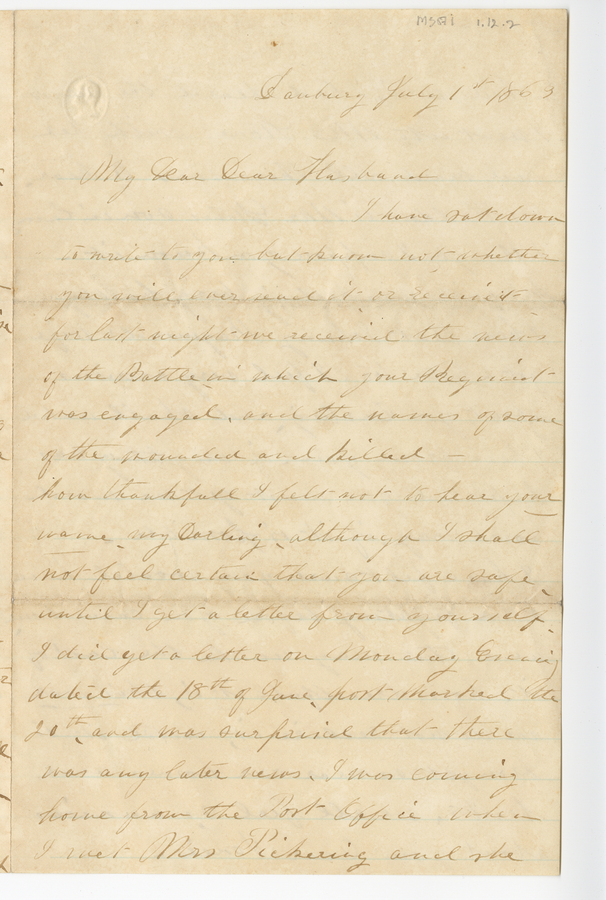 MS81 1.12.2
Danbury July 1st 1863
My Dear Dear Husband
I have sat down
to write to you but know not whether
you will ever read it or receive it
for last night we received the news
of the Battle in which your Regiment
was engaged, and the names of some
of the wounded and killed -
how thankfull I felt not to hear your
name, my Darling, although I shall
not feel certain that you are safe,
until I get a letter from yourself.
I did get a letter on Monday Evening
dated the 18th of June, post marked the
20th, and was surprised that there
was any later news. I was coming
home from the Post Office when
I met Mrs Pickering and she